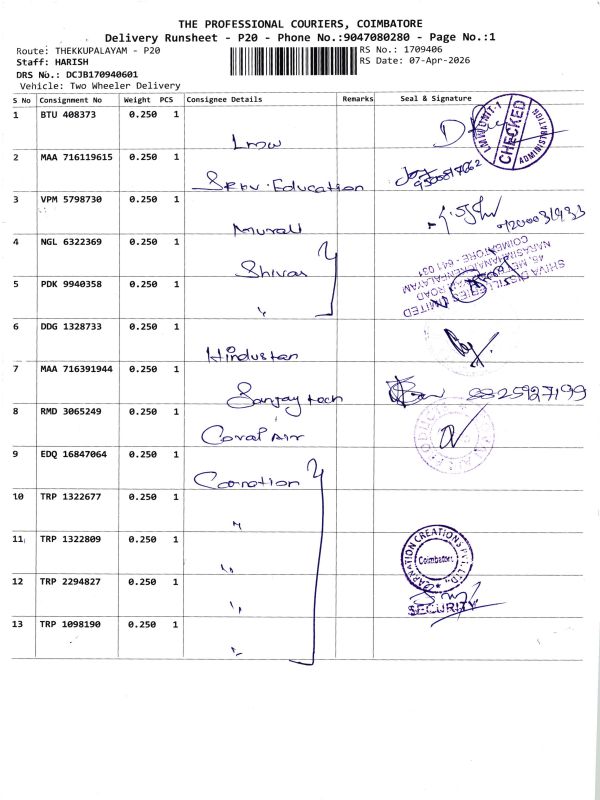 THE PROFESSIONAL COURIERS, COIMBATORE
Delivery Runsheet - P20 - Phone No.:9047080280 - Page No.:1
Route: THEKKUPALAYAM - P20 RS No.: 1709406
Staff: HARISH RS Date: 07-Apr-2026
DRS No.: DCJB170940601
Vehicle: Two Wheeler Delivery
S No Consignment No Weight PCS Consignee Details Remarks Seal & Signature
1 BTU 408373 0.250 1 Lmw
LMW UNIT-1 CHECKED ADMINISTRATION
2 MAA 716119615 0.250 1 Education
3 VPM 5798730 0.250 1 Murali
4 NGL 6322369 0.250 1 Shivas
SHIVA DISTILLERIES LIMITED
ROAD
COIMBATORE - 641 031
5 PDK 9940358 0.250 1 "
6 DDG 1328733 0.250 1 Hindustan
7 MAA 716391944 0.250 1 Sanjay tech 9825927199
8 RMD 3065249 0.250 1 Coral Air
9 EDQ 16847064 0.250 1 Coonation
10 TRP 1322677 0.250 1 "
11 TRP 1322809 0.250 1 "
CARNATION CREATIONS PVT. LTD.,
Coimbatore
12 TRP 2294827 0.250 1 "
SECURITY
13 TRP 1098190 0.250 1 "